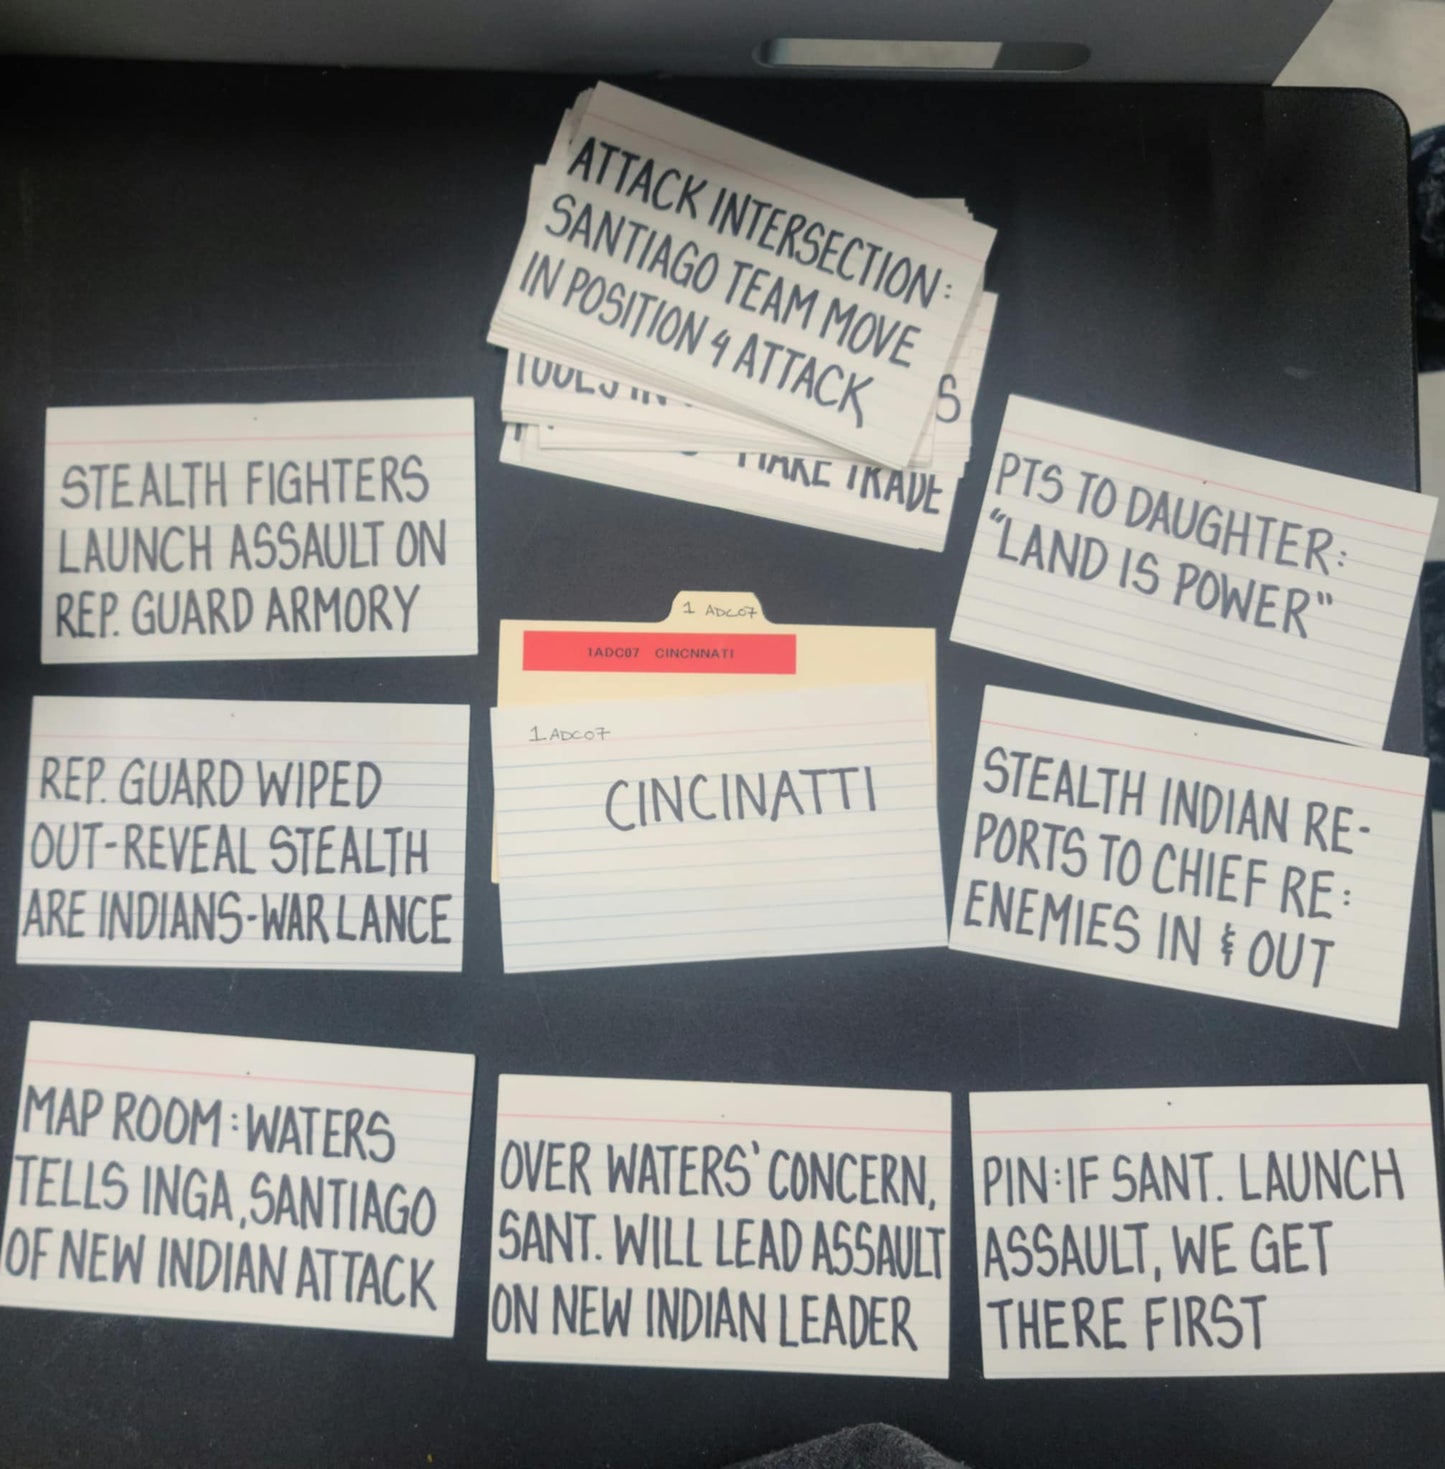 ATTACK INTERSECTION:
SANTIAGO TEAM MOVE
IN POSITION & ATTACK
TOOLS IN
S
MAKE TRADE
STEALTH FIGHTERS
LAUNCH ASSAULT ON
REP. GUARD ARMORY
PTS TO DAUGHTER:
"LAND IS POWER"
1 ADC07
1ADC07 CINCNNATI
1ADC07
CINCINATTI
REP. GUARD WIPED
OUT-REVEAL STEALTH
ARE INDIANS-WAR LANCE
STEALTH INDIAN RE-
PORTS TO CHIEF RE:
ENEMIES IN & OUT
MAP ROOM: WATERS
TELLS INGA, SANTIAGO
OF NEW INDIAN ATTACK
OVER WATERS' CONCERN,
SANT. WILL LEAD ASSAULT
ON NEW INDIAN LEADER
PIN: IF SANT. LAUNCH
ASSAULT, WE GET
THERE FIRST